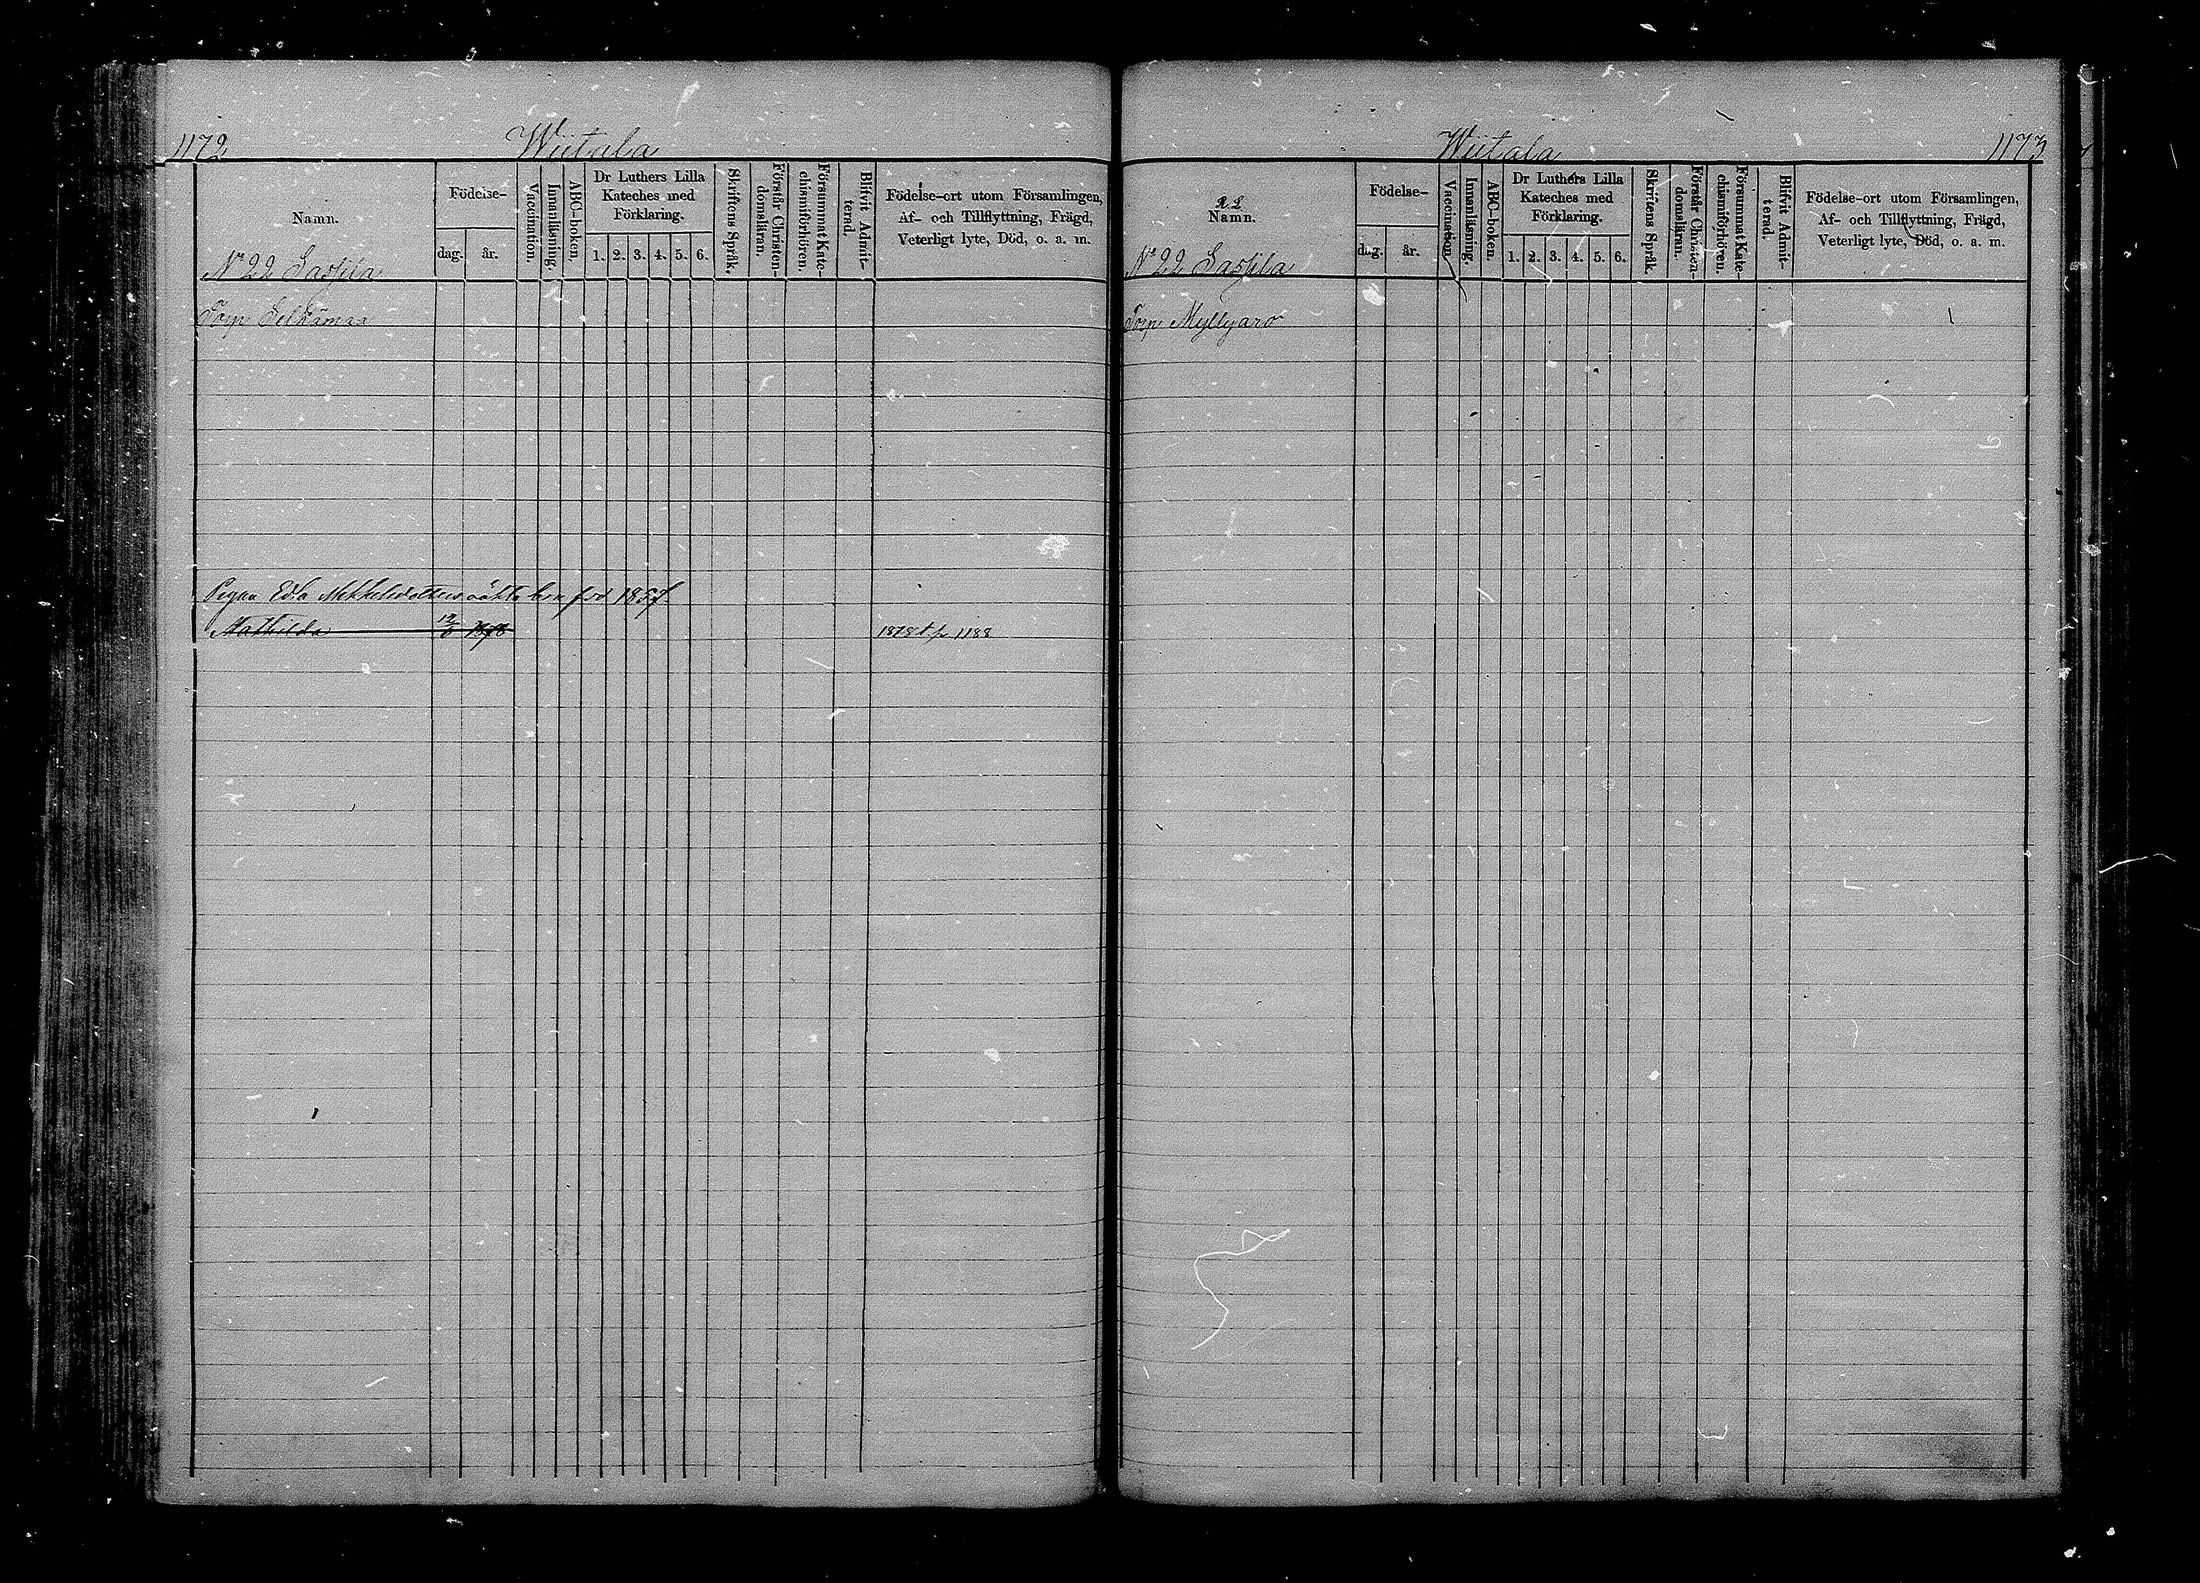 1172 Wiitala
Namn.
Födelse-
dag. år.
Vaccination.
Innanläsning.
ABC-boken.
Dr Luthers Lilla
Kateches med
Förklaring.
1. 2. 3. 4. 5. 6.
Skriftens Språk.
Förstår Christen-
domsläran.
Försummat Kate-
chismiförhören.
Blifvit Admit-
terad.
Födelse-ort utom Församlingen,
Af- och Tillflyttning, Frägd,
Veterligt lyte, Död, o. a. m.
No 22 Saarila
Torp
Pigan Eda oäkta barn född 1857
Mathilda 12/6 1878 1878 t p 1188
Wiitala 1173
Namn.
Födelse-
dag. år.
Vaccination.
Innanläsning.
ABC-boken.
Dr Luthers Lilla
Kateches med
Förklaring.
1. 2. 3. 4. 5. 6.
Skriftens Språk.
Förstår Christen-
domsläran.
Försummat Kate-
chismiförhören.
Blifvit Admit-
terad.
Födelse-ort utom Församlingen,
Af- och Tillflyttning, Frägd,
Veterligt lyte, Död, o. a. m.
No 22 Saarila
Torp Myllyaro